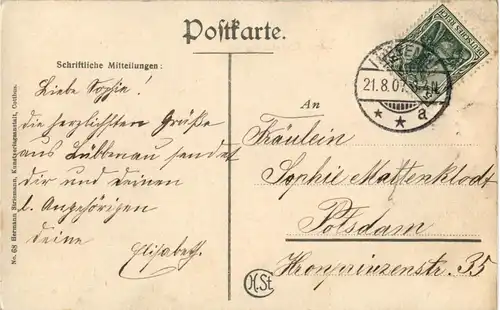 Postkarte.
Schriftliche Mitteilungen:
Liebe Sophie!
die herzlichsten Grüße
aus Lübbenau sendet
dir und deinen
l. Angehörigen
deine
Elisabeth.
An
Fräulein
Sophie Mattenklodt
Potsdam
Kronprinzenstr. 35
DEUTSCHES REICH
21.8.07.
* * a
No. 68 Hermann Kunstverlagsanstalt, Cottbus.
H.St